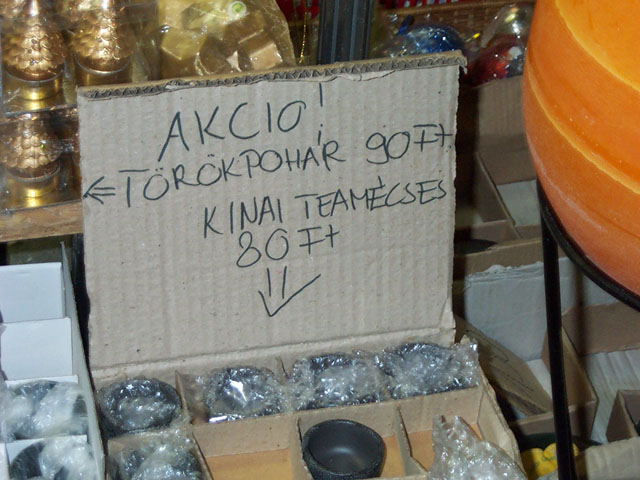 AKCIO!
⇐ TÖRÖKPOHÁR 90 Ft.
KINAI TEAMÉCSES
80 Ft